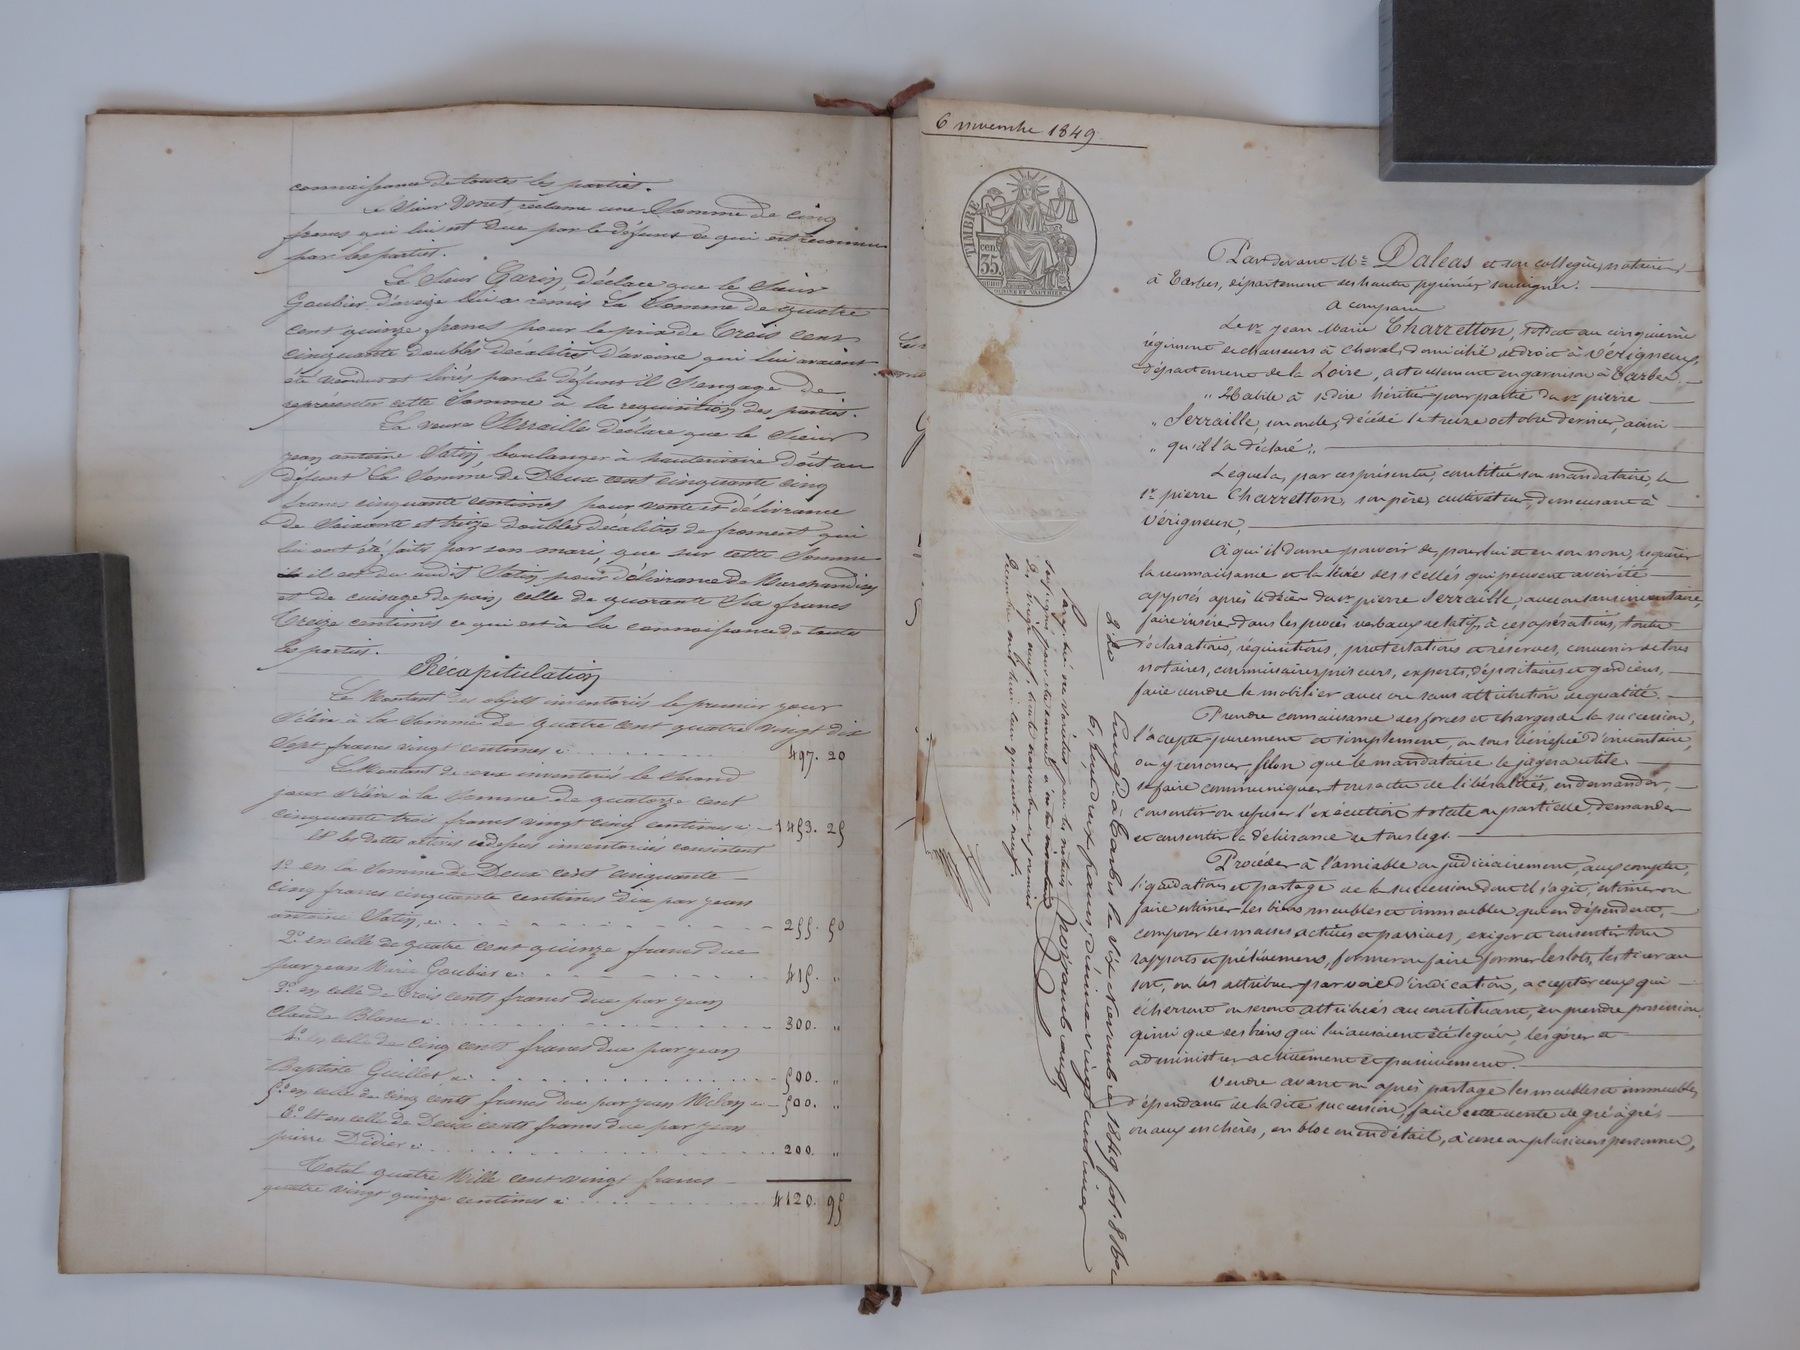 connaissance de toutes les parties.
Le Sieur Venet, réclame une Somme de cinq
francs qui lui est due par le défunt ce qui est reconnu
par les parties.
Le Sieur Garin, déclare que le Sieur
Goubier d'aveize lui a remis la Somme de quatre
cent quinze francs pour le prix de Trois cent
cinquante doubles décalitres d'avoine qui lui avaient
été vendus et livrés par le défunt il s'engage de
représenter cette Somme à la requisition des parties.
La veuve Serraille déclare que le Sieur
jean antoine Satin, boulanger à hauterivoire doit au
défunt la Somme de Deux cent cinquante cinq
francs cinquante centimes pour vente et délivrance
de Soixante et treize doubles décalitres de froment qui
lui ont été faits par son mari, que sur cette Somme
il est du audit Satin, pour délivrance de Marchandises
et de cuisage de pain, celle de quarante Six francs
Treize centimes ce qui est à la connaissance de toutes
les parties.
Récapitulation
Le Montant des objets inventoriés le premier jour
s'élève à la Somme de quatre cent quatre vingt dix
Sept francs vingt centimes ci 497. 20
Le Montant de ceux inventoriés le Second
jour s'élève à la Somme de quatorze cent
Cinquante trois francs vingt cinq centimes ci 1453. 25
Et les dettes actives cidessus inventoriées consistent
1.o en la Somme de Deux cent cinquante
cinq francs cinquante centimes due par jean
antoine Satin, ci 255. 50
2.o en celle de quatre cent quinze francs due
par jean Marie Goubier ci 415. "
3.o en celle de Trois cents francs due par jean
Claude Blanc ci 300. "
4.o en celle de cinq cents francs due par jean
Baptiste Guillot, ci 500. "
5.o en celle de cinq cents francs due par jean Milon ci 500. "
6.o Et en celle de Deux cents francs due par jean
pierre Didier ci 200. "
Total quatre Mille cent vingt francs
quatre vingt quinze centimes ci 4120. 95
6 novembre 1849
TIMBRE
cen.
35
Pardevant Me Daleas et son collègue, notaires
à Tarbes, département des hautes pyrénées soussignés.
A comparu
Le sr jean Marie Charretton, soldat au cinquième
régiment de chasseurs à cheval, domicilié de droit à Vérigneux,
département de la Loire, actuellement en garnison à Tarbes,
" Habile à se dire héritier pour partie du sr pierre
" Serraille, son oncle, décédé le treize octobre dernier, ainsi
" qu'il l'a déclaré".
Lequel a, par ces présentes, constitué son mandataire, le
sr pierre Charretton, son père, cultivateur, demeurant à
Vérigneux,
A qui il donne pouvoir de, pour lui et en son nom, requérir
la reconnaissance et la levée des scellés qui peuvent avoir été
apposés après le décès du sr pierre Serraille, avec ou sans inventaire,
faire insérer dans les procès verbaux relatifs à ces opérations, toutes
déclarations, réquisitions, protestations et réserves, convenir de tous
notaires, commissaires priseurs, experts, dépositaires et gardiens,
faire vendre le mobilier avec ou sans attribution de qualité.
Prendre connaissance des forces et charges de la succession,
l'accepter purement et simplement, ou sous bénéfice d'inventaire,
ou y renoncer, selon que le mandataire le jugera utile
se faire communiquer tous actes de libéralités, en demander,
consentir ou refuser l'exécution totale ou partielle, demander
et consentir la délivrance de tous legs.
Procéder à l'amiable ou judiciairement, aux comptes,
liquidations et partage de la succession dont il s'agit, estimer ou
faire estimer les biens meubles et immeubles qui en dépendent,
composer les masses actives et passives, exiger et consentir tous
rapports et prélèvemens, former ou faire former les lots, les tirer au
sort, ou les attribuer par voie d'indication, accepter ceux qui
écherront ou seront attribués au constituant, en prendre possession
ainsi que des biens qui lui auraient été légués, les gérer et
administrer activement et passivement.
Vendre avant ou après partage les meubles et immeubles
dépendants de la dite succession, faire cette vente de gré à gré
ou aux enchères, en bloc ou en détail, à une ou plusieurs personnes,
2 20
Enregé à Tarbes le Six Novembre 1849 fol. 8
deux francs, décime vingt centimes
soussignés pour être annexé à